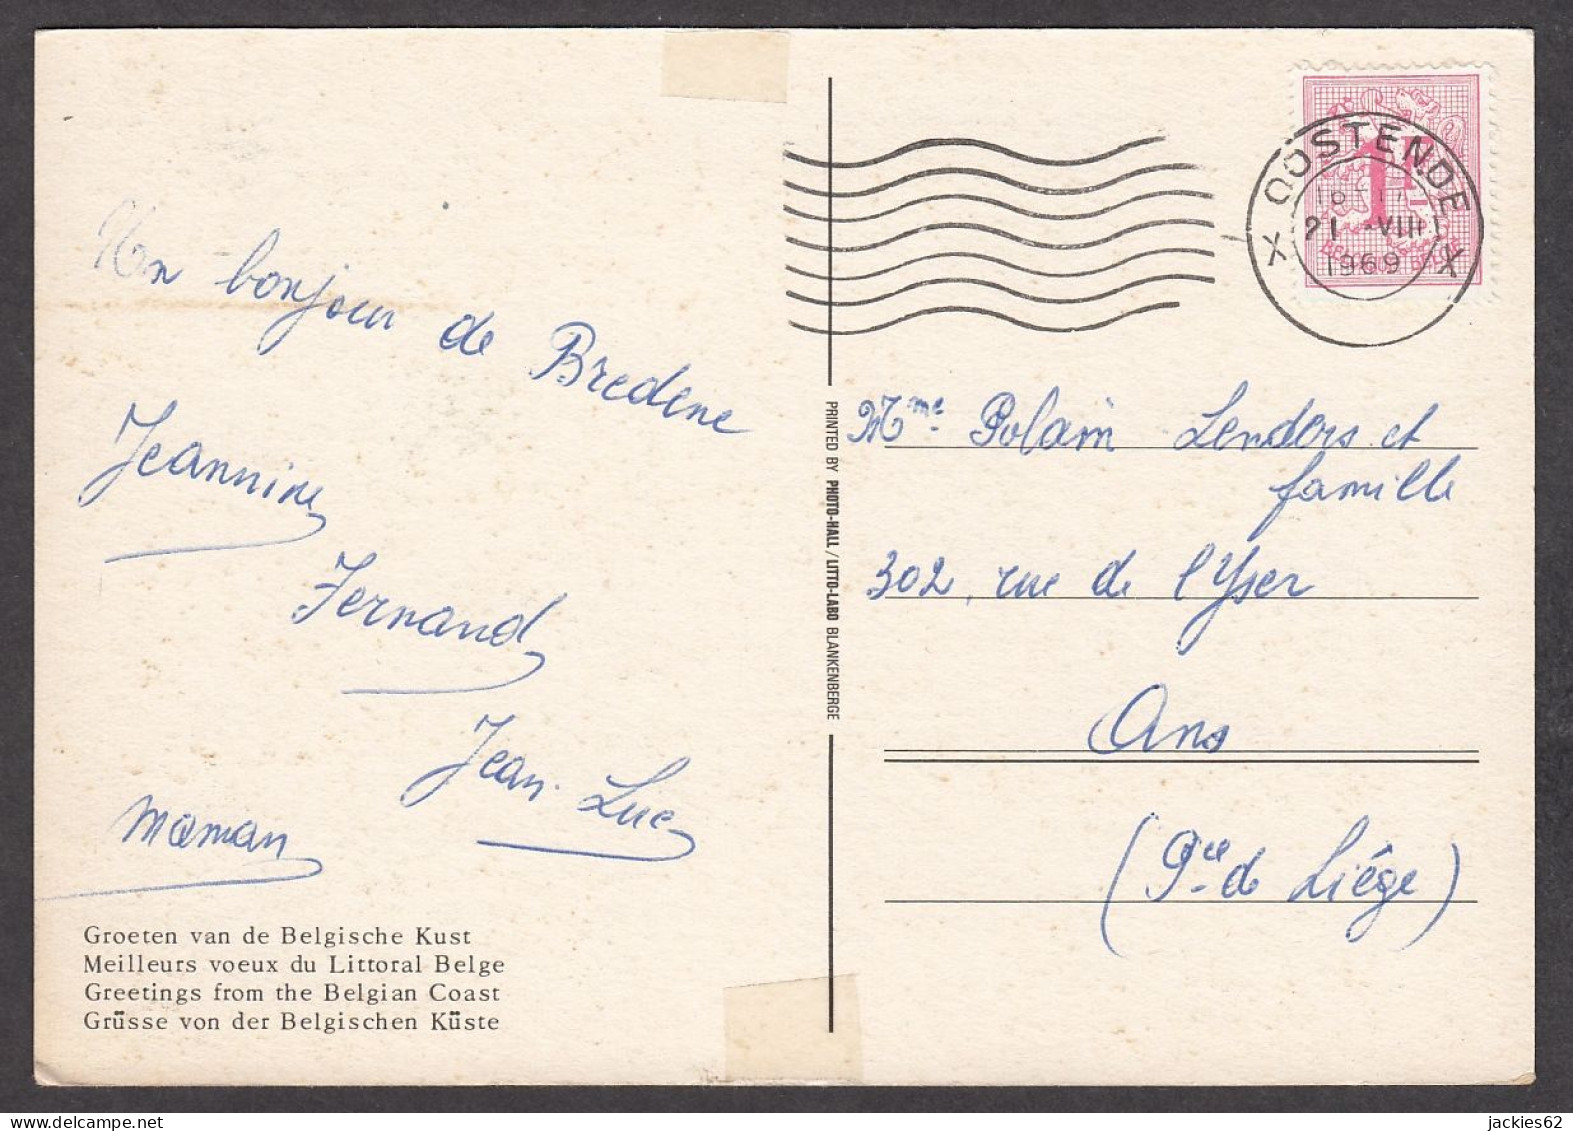 Un bonjour de Bredene
Jeannine
Fernand
Jean-Luc
Maman
Groeten van de Belgische Kust
Meilleurs voeux du Littoral Belge
Greetings from the Belgian Coast
Grüsse von der Belgischen Küste
PRINTED BY PHOTO-HALL / LITTO-LABO BLANKENBERGE
X OOSTENDE X
21 -VIII
1969
1F
BELGIQUE BELGIE
Mme Polain Lendors et
famille
302, rue de l'Yser
Ans
(Pce de Liége)
jackies62